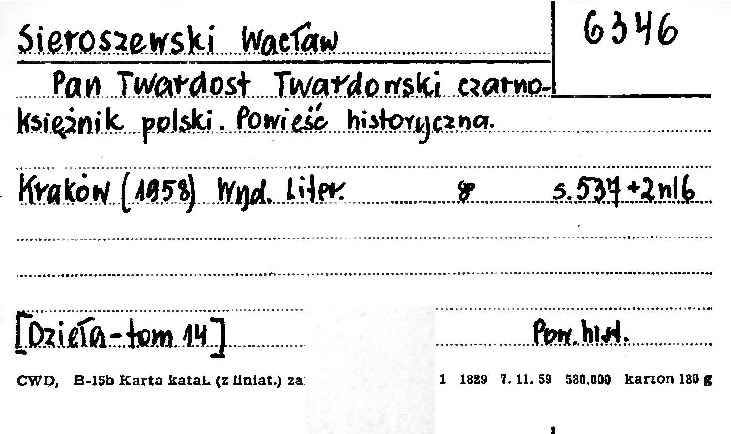 6346
Sieroszewski Wacław
Pan Twardost Twardowski czarno-
księżnik polski. Powieść historyczna.
Kraków (1958) Wyd. Liter. 8 s. 537+2nlb
[Dzieła-tom 14] Pow. hist.
CWD, B-15b Karta katal. (z liniat.) za 1 1829 7. 11. 59 580.000 karton 180 g